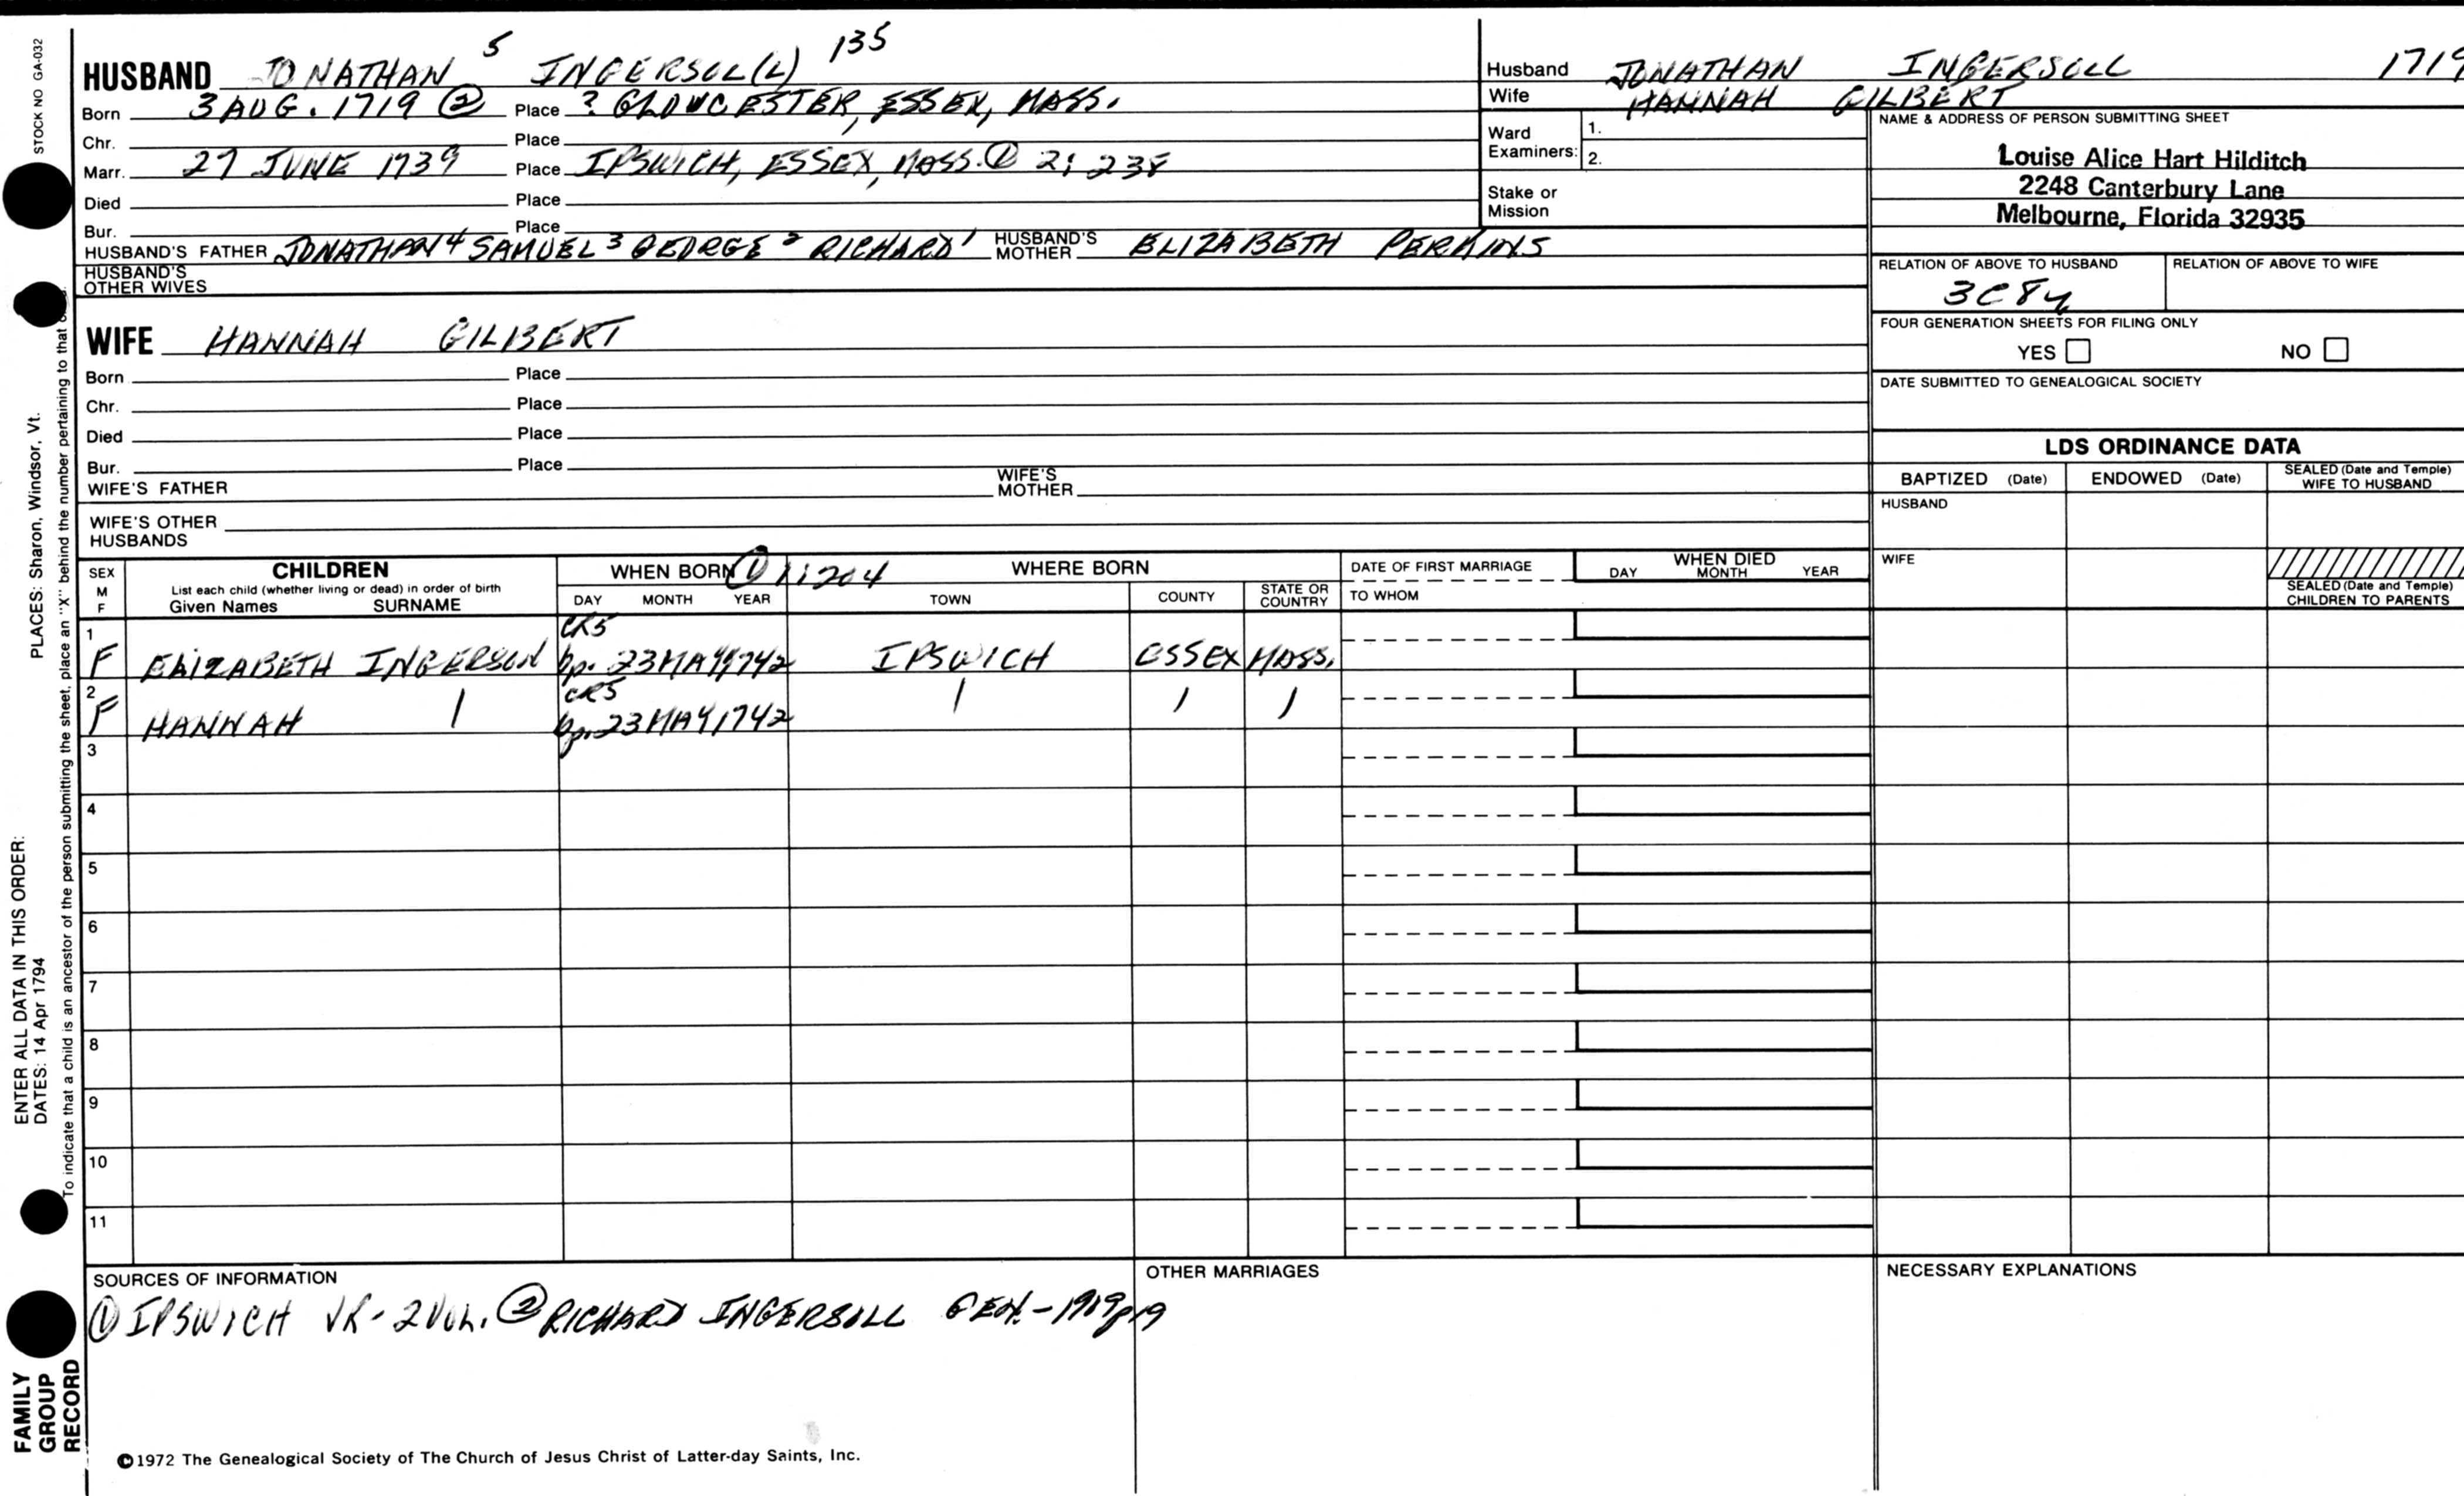 STOCK NO GA-032
HUSBAND JONATHAN 5 INGERSOL(L) 135
Born 3 AUG. 1719 ② Place ? GLOUCESTER, ESSEX, MASS.
Chr. Place
Marr. 27 JUNE 1739 Place IPSWICH, ESSEX, MASS. ① 2: 238
Died Place
Bur. Place
HUSBAND'S FATHER JONATHAN 4 SAMUEL 3 GEORGE 2 RICHARD 1 HUSBAND'S MOTHER ELIZABETH PERKINS
HUSBAND'S OTHER WIVES
Husband JONATHAN INGERSOLL 1719
Wife HANNAH GILBERT
Ward Examiners: 1.
2.
Stake or Mission
NAME & ADDRESS OF PERSON SUBMITTING SHEET
Louise Alice Hart Hilditch
2248 Canterbury Lane
Melbourne, Florida 32935
RELATION OF ABOVE TO HUSBAND RELATION OF ABOVE TO WIFE
FOUR GENERATION SHEETS FOR FILING ONLY
YES NO
DATE SUBMITTED TO GENEALOGICAL SOCIETY
WIFE HANNAH GILBERT
Born Place
Chr. Place
Died Place
Bur. Place
WIFE'S FATHER WIFE'S MOTHER
WIFE'S OTHER HUSBANDS
LDS ORDINANCE DATA
BAPTIZED (Date) ENDOWED (Date) SEALED (Date and Temple) WIFE TO HUSBAND
HUSBAND
WIFE
SEALED (Date and Temple) CHILDREN TO PARENTS
SEX M F
CHILDREN
List each child (whether living or dead) in order of birth
Given Names SURNAME
WHEN BORN ① 1:204
DAY MONTH YEAR
WHERE BORN
TOWN COUNTY STATE OR COUNTRY
DATE OF FIRST MARRIAGE
TO WHOM
WHEN DIED
DAY MONTH YEAR
1 CR5
F ELIZABETH INGERSON bp. 23 MAY 1742 IPSWICH ESSEX MASS.
2 CR5
F HANNAH | bp. 23 MAY 1742 | | |
3
4
5
6
7
8
9
10
11
SOURCES OF INFORMATION
① IPSWICH VR - 2 VOL. ② RICHARD INGERSOLL GEN. - 1909 p19
OTHER MARRIAGES
NECESSARY EXPLANATIONS
©1972 The Genealogical Society of The Church of Jesus Christ of Latter-day Saints, Inc.
FAMILY GROUP RECORD
ENTER ALL DATA IN THIS ORDER:
DATES: 14 Apr 1794
PLACES: Sharon, Windsor, Vt.
To indicate that a child is an ancestor of the person submitting the sheet, place an "X" behind the number pertaining to that